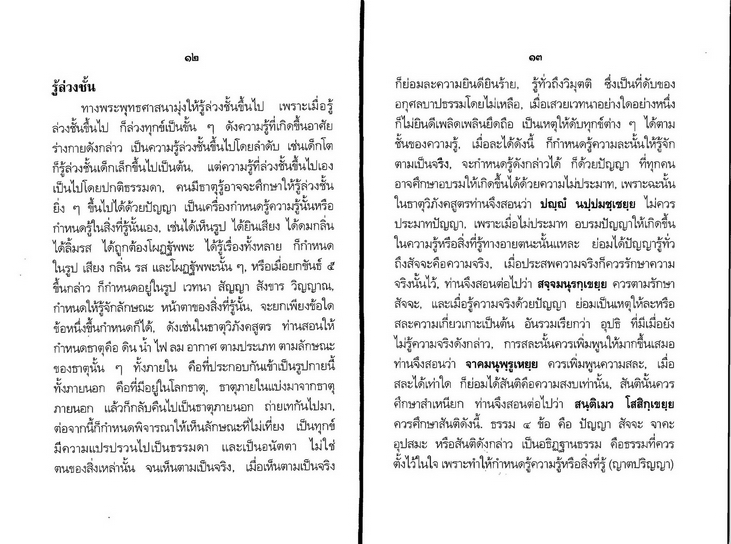 ๑๒
รู้ล่วงชั้น
ทางพระพุทธศาสนามุ่งให้รู้ล่วงชั้นขึ้นไป เพราะเมื่อรู้
ล่วงชั้นขึ้นไป ก็ล่วงทุกข์เป็นชั้น ๆ ดังความรู้ที่เกิดขึ้นอาศัย
ร่างกายดังกล่าว เป็นความรู้ล่วงชั้นขึ้นไปโดยลำดับ เช่นเด็กโต
ก็รู้ล่วงชั้นเด็กเล็กขึ้นไปเป็นต้น, แต่ความรู้ที่ล่วงชั้นขึ้นไปเอง
เป็นไปโดยปกติธรรมดา, คนมีธาตุรู้อาจจะศึกษาให้รู้ล่วงชั้น
ยิ่ง ๆ ขึ้นไปได้ด้วยปัญญา เป็นเครื่องกำหนดรู้ความรู้นั้นหรือ
กำหนดรู้ในสิ่งที่รู้นั้นเอง, เช่นได้เห็นรูป ได้ยินเสียง ได้ดมกลิ่น
ได้ลิ้มรส ได้ถูกต้องโผฏฐัพพะ ได้รู้เรื่องทั้งหลาย ก็กำหนด
ในรูป เสียง กลิ่น รส และโผฏฐัพพะนั้น ๆ, หรือเมื่อยกขันธ์ ๕
ขึ้นกล่าว ก็กำหนดอยู่ในรูป เวทนา สัญญา สังขาร วิญญาณ,
กำหนดให้รู้จักลักษณะ หน้าตาของสิ่งที่รู้นั้น, จะยกเพียงข้อใด
ข้อหนึ่งขึ้นกำหนดก็ได้, ดังเช่นในธาตุวิภังคสูตร ท่านสอนให้
กำหนดธาตุคือ ดิน น้ำ ไฟ ลม อากาศ ตามประเภท ตามลักษณะ
ของธาตุนั้น ๆ ทั้งภายใน คือที่ประกอบกันเข้าเป็นรูปกายนี้
ทั้งภายนอก คือที่มีอยู่ในโลกธาตุ, ธาตุภายในแบ่งมาจากธาตุ
ภายนอก แล้วก็กลับคืนไปเป็นธาตุภายนอก ถ่ายเทกันไปมา,
ต่อจากนี้ก็กำหนดพิจารณาให้เห็นลักษณะที่ไม่เที่ยง เป็นทุกข์
มีความแปรปรวนไปเป็นธรรมดา และเป็นอนัตตา ไม่ใช่
ตนของสิ่งเหล่านั้น จนเห็นตามเป็นจริง, เมื่อเห็นตามเป็นจริง
๑๓
ก็ย่อมละความยินดียินร้าย, รู้ทั่วถึงวิมุตติ ซึ่งเป็นที่ดับของ
อกุศลบาปธรรมโดยไม่เหลือ, เมื่อเสวยเวทนาอย่างใดอย่างหนึ่ง
ก็ไม่ยินดีเพลิดเพลินยึดถือ เป็นเหตุให้ดับทุกข์ต่าง ๆ ได้ตาม
ชั้นของความรู้, เมื่อละได้ดังนี้ ก็กำหนดรู้ความละนั้นให้รู้จัก
ตามเป็นจริง, จะกำหนดรู้ดังกล่าวได้ ก็ด้วยปัญญา ที่ทุกคน
อาจศึกษาอบรมให้เกิดขึ้นได้ด้วยความไม่ประมาท, เพราะฉะนั้น
ในธาตุวิภังคสูตรท่านจึงสอนว่า ปญฺญํ นปฺปมชฺเชยฺย ไม่ควร
ประมาทปัญญา, เพราะเมื่อไม่ประมาท อบรมปัญญาให้เกิดขึ้น
ในความรู้หรือสิ่งที่รู้ทางอายตนะนั้นแหละ ย่อมได้ปัญญารู้ทั่ว
ถึงสัจจะคือความจริง, เมื่อประสพความจริงก็ควรรักษาความ
จริงนั้นไว้, ท่านจึงสอนต่อไปว่า สจฺจมนุรกฺเขยฺย ควรตามรักษา
สัจจะ, และเมื่อรู้ความจริงด้วยปัญญา ย่อมเป็นเหตุให้ละหรือ
สละความเกี่ยวเกาะเป็นต้น อันรวมเรียกว่า อุปธิ ที่มีเมื่อยัง
ไม่รู้ความจริงดังกล่าว, การสละนั้นควรเพิ่มพูนให้มากขึ้นเสมอ
ท่านจึงสอนว่า จาคมนุพฺรูเหยฺย ควรเพิ่มพูนความสละ, เมื่อ
สละได้เท่าใด ก็ย่อมได้สันติคือความสงบเท่านั้น, สันตินั้นควร
ศึกษาสำเหนียก ท่านจึงสอนต่อไปว่า สนฺติเมว โสสิกฺเขยฺย
ควรศึกษาสันติดังนี้. ธรรม ๔ ข้อ คือ ปัญญา สัจจะ จาคะ
อุปสมะ หรือสันติดังกล่าว เป็นอธิฏฐานธรรม คือธรรมที่ควร
ตั้งไว้ในใจ เพราะทำให้กำหนดรู้ความรู้หรือสิ่งที่รู้ (ญาตปริญญา)